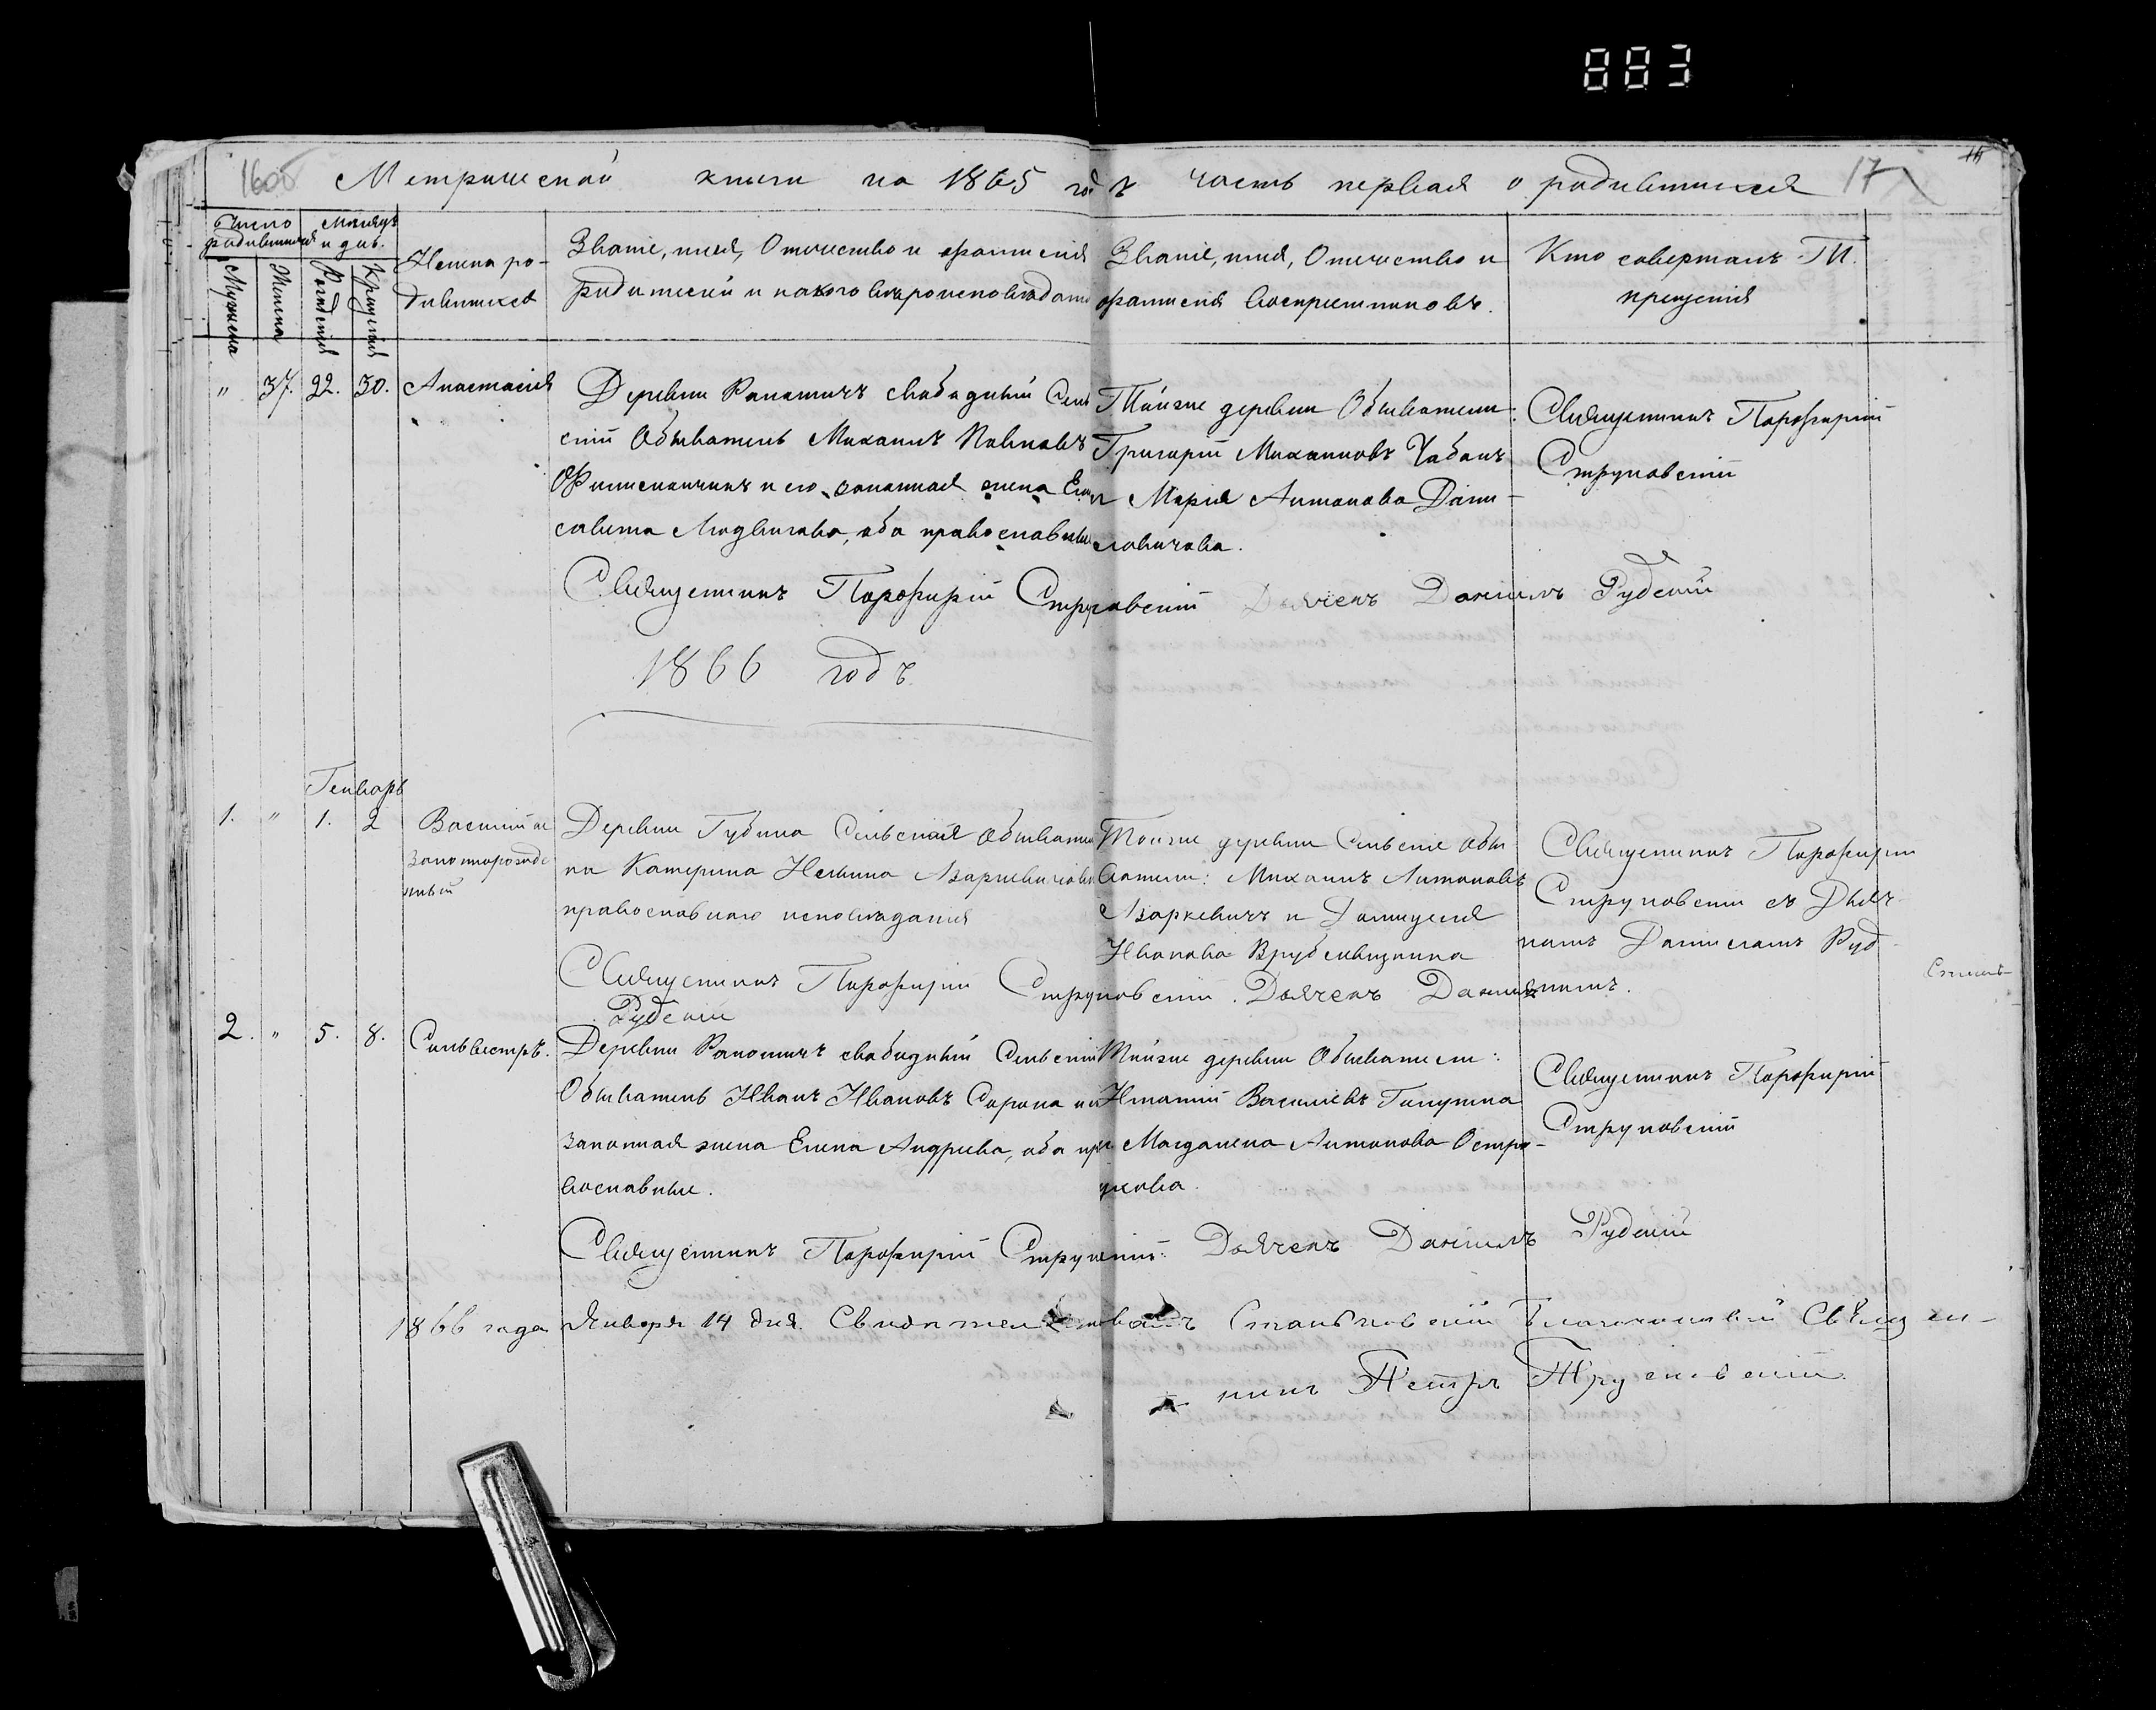 883
Метрической книги на 1865 годъ часть первая о родившихся 17
Число родившихся
Мѣсяцъ и день
Мужеска
Женска
Рожденія
Крещенія
Имена ро-
дившихся
Званіе, имя, Отчество и фамилія
Родителей и какого вѣроисповѣданія
Званіе, имя, Отчество и
фамилія воспріемниковъ.
Кто совершалъ Т.
крещенія
" 37. 22. 30. Анастасія
Деревни свободный Сель
скій Обыватель Михаилъ Павловъ
и его законная жена Ели
савета Людвигова, оба православные
Тойже деревни Обыватели:
Григорій Михаиловъ Чабанъ
и Марія Антонова Дани-
ловичова.
Священникъ Порфирій
Струковскій
Священникъ Порфирій Струковскій Дьячекъ Даніилъ Рудскій
1866 годъ
Генварь
1. " 1. 2
Василій не
законорожде
нный
Деревни Губина Сельская Обывател
ка Катерина
православнаго исповѣданія
Тойже деревни Сельскіе Обы
ватели: Михаилъ Антоновъ
Азаркевичъ и Домицеля
Иванова
Священникъ Порфирій
Струковскій съ Дьяч
комъ Даниломъ Руд
скимъ.
Священникъ Порфирій Струковскій. Дьячекъ Даніилъ
Рудскій
2. " 5. 8. Сильвестръ.
Деревни свободный Сельскій
Обыватель Иванъ Ивановъ Сорока и его
законная жена Елена Андреева, оба пра
вославные.
Тойже деревни Обыватели:
Игнатій Василіевъ
и Магдалена Антонова Остро-
ухова.
Священникъ Порфирій
Струковскій
Священникъ Порфирій Дьячекъ Даніилъ Рудскій
1866 года Января 14 дня. Свидѣтельствовалъ Благочинный Священ-
никъ Петръ